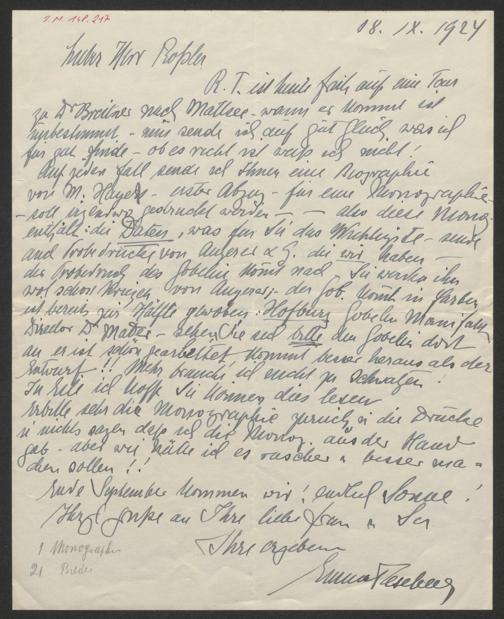 I.N. 148.217
08. IX. 1924
Lieber Herr Roßler
R. T. ist heute früh auf eine Tour
zu Dr Breitner nach Mattsee - wann er kommt ist
unbestimmt - nun sende ich auf gut Glück, was ich
für gut finde - ob es recht ist weiß ich nicht!
Auf jeden Fall sende ich Ihnen eine Biographie
von M. Hayek - erster Abzug - für eine Monographie -
- soll irgendwo gedruckt werden - also diese Monog.
enthält die Daten, was für Sie das Wichtigste - sende
auch Probedrucke von Angerer & G. die wir haben -
der Probedruck des Gobelin kommt nach Sie werden ihn
wol schon kriegen von Angerer - der Gob. kommt in Farben
ist bereits zur Hälfte gewoben. Hofburg Gobelin Manufaktur
Director Dr Mader - sehen Sie sich bitte den Gobelin dort
an er ist schön gearbeitet kommt besser heraus als der
Entwurf!! Mehr brauche ich nicht zu schwatzen!
In Eile ich hoffe Sie können dies lesen
Erbitte sehr die Monographie zurück, die Drucke
u nichts sagen daß ich die Monog. aus der Hand
gab - aber wie hätte ich es rascher u besser ma-
chen sollen!!
Ende September kommen wir! endlich Sonne!
Herzl. Grüße an Ihre liebe Frau u Sie
Ihre ergebene
Emma
1 Monographie
21 Bilder